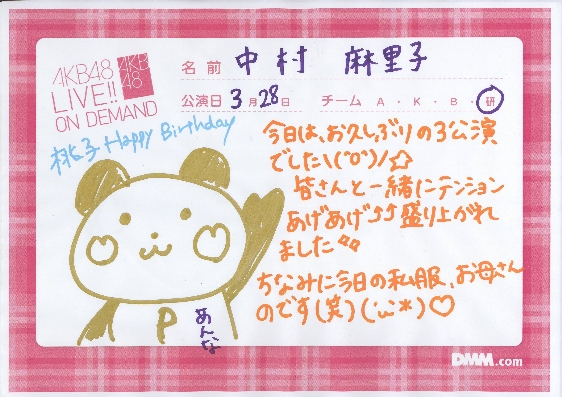 AKB48
LIVE!!
ON DEMAND
AKB
48
名前 中村 麻里子
公演日 3月28日 チーム A・K・B・研
桃子 Happy Birthday
今日は、お久しぶりの3公演
でした\(^o^)/☆
皆さんと一緒にテンション
あげあげ⤴⤴盛り上がれ
ました
ちなみに今日の私服、お母さん
のです(笑)(・ω・*)♡
P
めんな
DMM.com